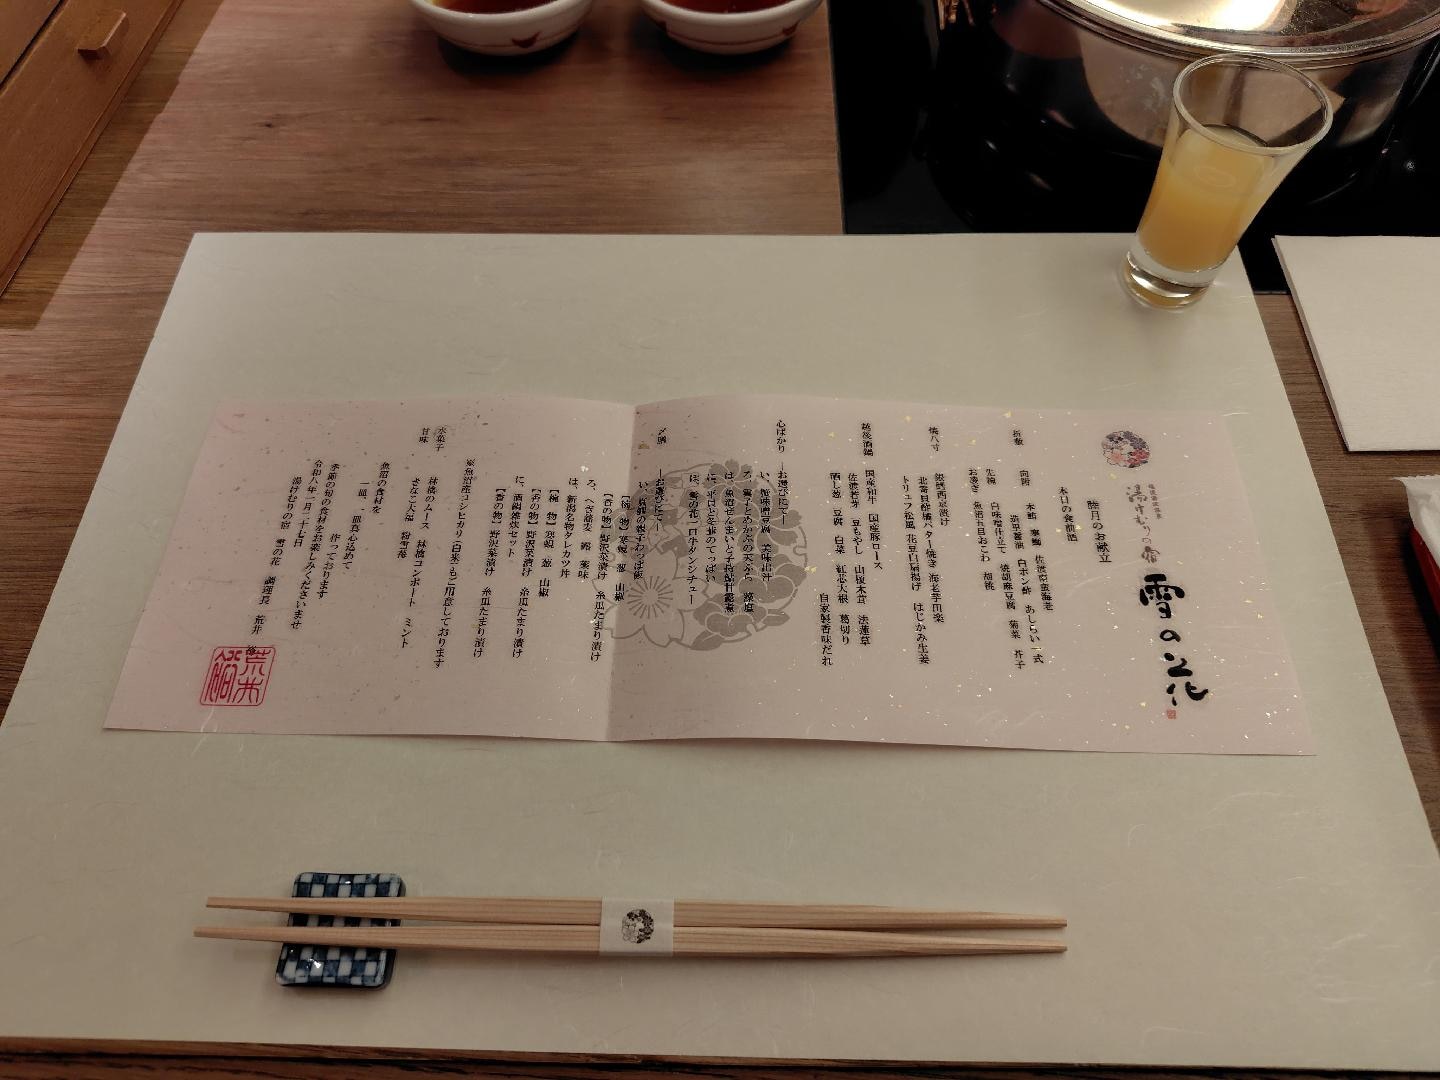 越後湯沢温泉
湯けむりの宿
雪の花
睦月のお献立
本日の食前酒
折敷
向附 本鮪 寒鰤 佐渡南蛮海老 あしらい一式
造里醤油 白ポン酢
先椀 白味噌仕立て 焼胡麻豆腐 菊菜 芥子
お凌ぎ 魚沼五目おこわ 胡桃
焼八寸
銀鱈西京漬け
北寄貝酢橘バター焼き 海老芋田楽
トリュフ松風 花豆白扇揚げ はじかみ生姜
越後酒鍋
国産和牛 国産豚ロース
佐渡若芽 豆もやし 山榎木茸 法蓮草
晒し葱 豆腐 白菜 紅芯大根 葛切り
自家製香味だれ
心ばかり ―お選びにて―
い、蟹味噌豆腐 美味出汁
ろ、雪子とめかぶの天ぷら 藻塩
は、魚沼ぜんまいと子持鮎甘露煮
に、平目と冬菇のてっぱい
ほ、雪の花一口牛タンシチュー
〆膳 ―お選びにて―
【椀 物】寒蜆 葱 山椒
【香の物】野沢菜漬け 糸瓜たまり漬け
ろ、へぎ蕎麦 鰹 薬味
は、新潟名物タレカツ丼
【椀 物】寒蜆 葱 山椒
【香の物】野沢菜漬け 糸瓜たまり漬け
に、酒鍋雑炊セット
【香の物】野沢菜漬け 糸瓜たまり漬け
※魚沼産コシヒカリ(白米)もご用意しております
水菓子 林檎のムース 林檎コンポート ミント
甘味 きなこ大福 粉雪菴
魚沼の食材を
一皿一皿真心込めて
作っております
季節の旬の食材をお楽しみくださいませ
令和八年一月二十七日
湯けむりの宿 雪の花 調理長 荒井
荒井